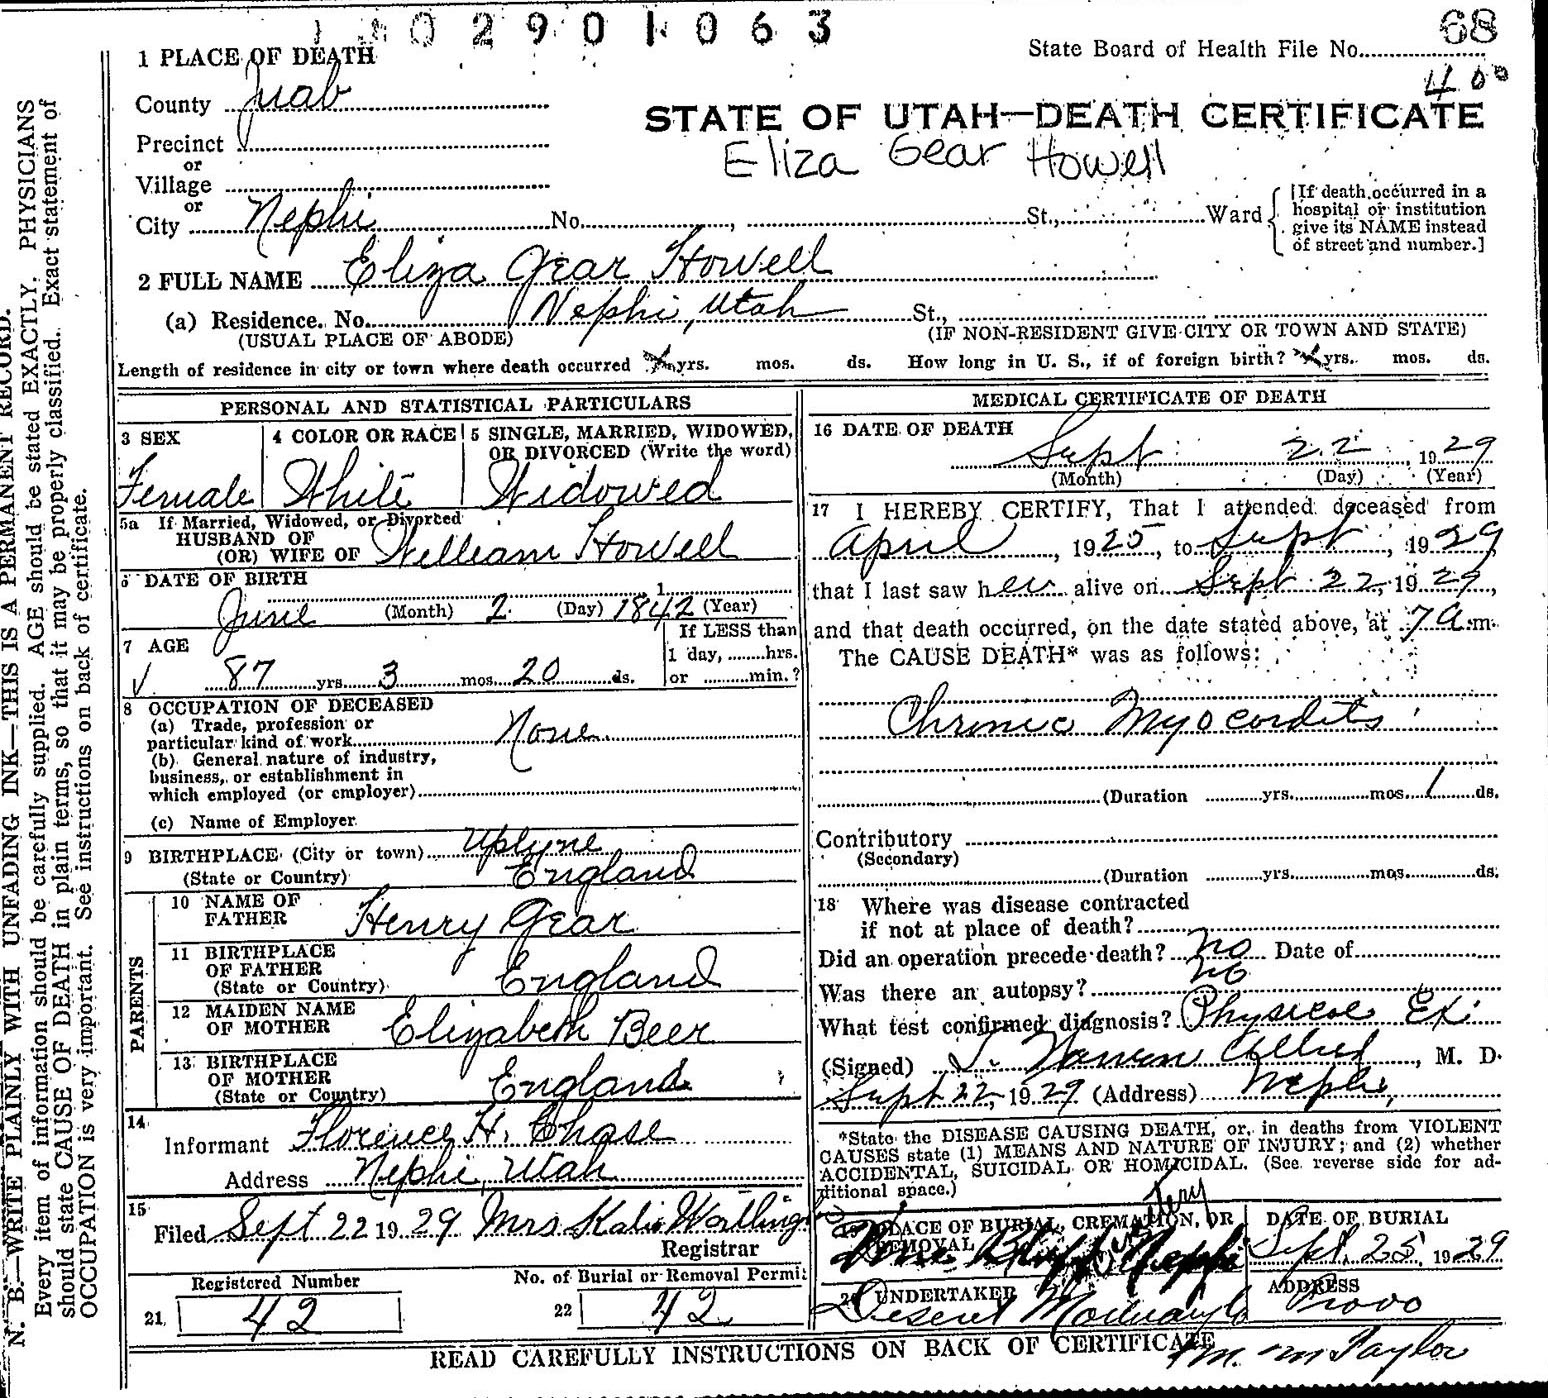 02901063
68
State Board of Health File No.
400
1 PLACE OF DEATH
County Juab
STATE OF UTAH—DEATH CERTIFICATE
Precinct
Eliza Gear Howell
or
Village
or
City Nephi No. , St., Ward
[If death occurred in a hospital or institution give its NAME instead of street and number.]
2 FULL NAME Eliza Gear Howell
(a) Residence. No. Nephi, Utah St.,
(USUAL PLACE OF ABODE) (IF NON-RESIDENT GIVE CITY OR TOWN AND STATE)
Length of residence in city or town where death occurred yrs. mos. ds. How long in U. S., if of foreign birth? yrs. mos. ds.
PERSONAL AND STATISTICAL PARTICULARS
3 SEX
Female
4 COLOR OR RACE
White
5 SINGLE, MARRIED, WIDOWED,
OR DIVORCED (Write the word)
Widowed
5a If Married, Widowed, or Divorced
HUSBAND OF
(OR) WIFE OF William Howell
6 DATE OF BIRTH 1
June (Month) 2 (Day) 1842 (Year)
7 AGE
87 yrs. 3 mos. 20 ds.
If LESS than
1 day, hrs.
or min.?
8 OCCUPATION OF DECEASED
(a) Trade, profession or
particular kind of work None
(b) General nature of industry,
business, or establishment in
which employed (or employer)
(c) Name of Employer
9 BIRTHPLACE (City or town) Uplyne
(State or Country) England
PARENTS
10 NAME OF
FATHER Henry Gear
11 BIRTHPLACE
OF FATHER
(State or Country) England
12 MAIDEN NAME
OF MOTHER Elizabeth Beer
13 BIRTHPLACE
OF MOTHER
(State or Country) England
14
Informant Florence H. Chase
Address Nephi, Utah
15
Filed Sept 22 1929 Mrs Katie
Registrar
Registered Number
21. 42
No. of Burial or Removal Permit
22 42
MEDICAL CERTIFICATE OF DEATH
16 DATE OF DEATH
Sept 22, 1929
(Month) (Day) (Year)
17 I HEREBY CERTIFY, That I attended deceased from
April, 1925, to Sept, 1929,
that I last saw her alive on Sept 22, 1929,
and that death occurred, on the date stated above, at 7 A. m.
The CAUSE DEATH* was as follows:
Chronic Myocordits
(Duration yrs. mos. 1 ds.
Contributory
(Secondary)
(Duration yrs. mos. ds.
18 Where was disease contracted
if not at place of death?
Did an operation precede death? no Date of
Was there an autopsy? no
What test confirmed diagnosis? Physical Ex.
(Signed) Allred, M. D.
Sept 22, 1929 (Address) Nephi,
*State the DISEASE CAUSING DEATH, or, in deaths from VIOLENT
CAUSES state (1) MEANS AND NATURE OF INJURY; and (2) whether
ACCIDENTAL, SUICIDAL OR HOMICIDAL. (See reverse side for ad-
ditional space.)
19 PLACE OF BURIAL, CREMATION, OR
REMOVAL
Nephi
DATE OF BURIAL
Sept. 25, 1929
20 UNDERTAKER
Deseret Mortuary
ADDRESS
Provo
READ CAREFULLY INSTRUCTIONS ON BACK OF CERTIFICATE
Taylor
N. B.—WRITE PLAINLY WITH UNFADING INK—THIS IS A PERMANENT RECORD.
Every item of information should be carefully supplied. AGE should be stated EXACTLY. PHYSICIANS
should state CAUSE OF DEATH in plain terms, so that it may be properly classified. Exact statement of
OCCUPATION is very important. See instructions on back of certificate.